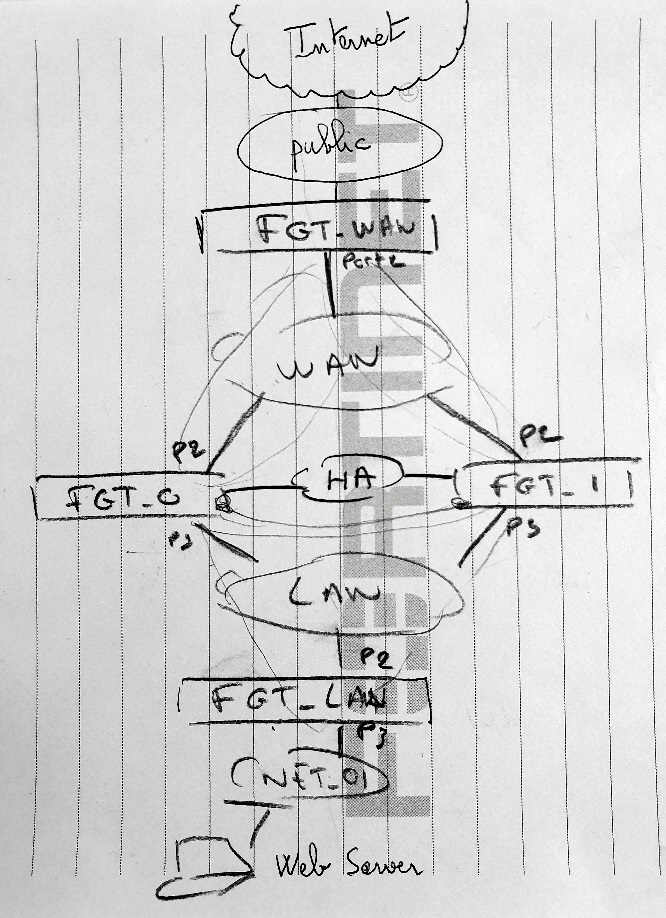 Internet
public
FGT_WAN
Port2
WAN
P2
P2
FGT_0
HA
FGT_1
P3
P3
LAN
P2
FGT_LAN
P3
NET_01
Web Server
FORTINET